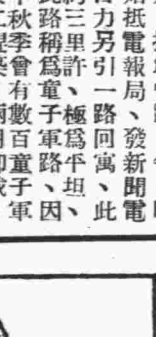 抵電報局、發新聞電
力另引一路回寓、此
約三里許、極爲平坦、
此路稱爲童子軍路、因
秋季曾有數百童子軍